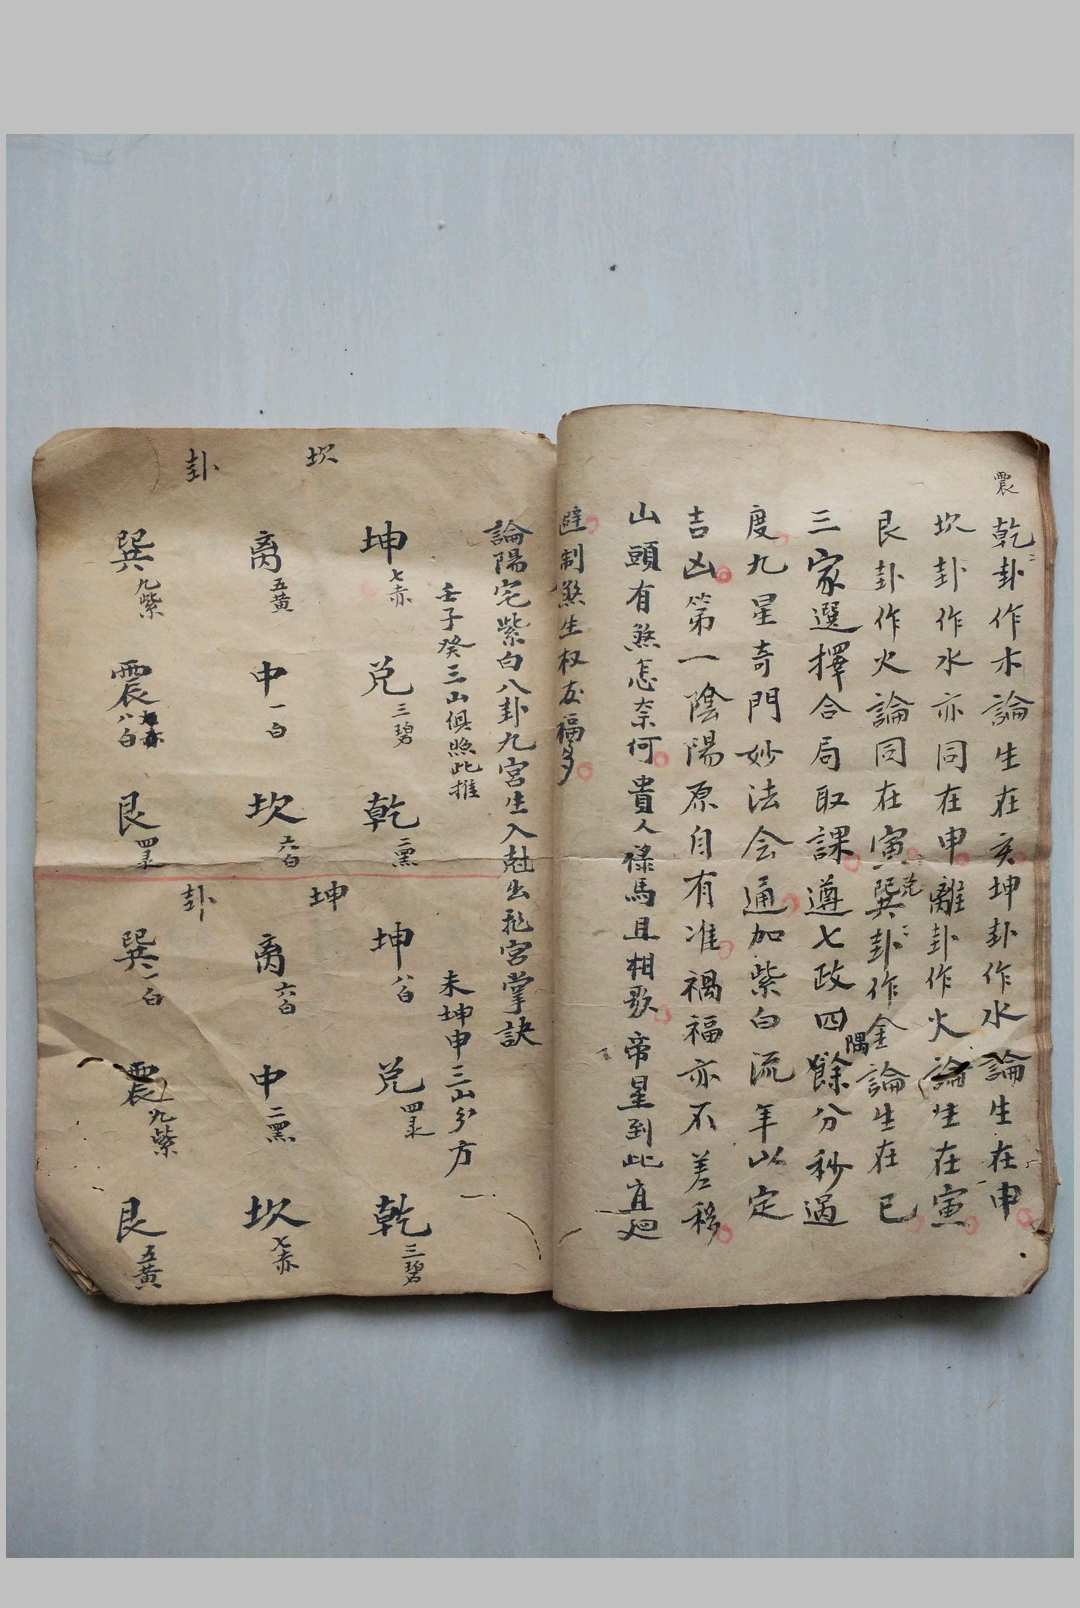 震
乾卦作木論生在亥坤卦作水論生在申
坎卦作水亦同在申離卦作火論生在寅
艮卦作火論同在寅兌巽卦作金論生在巳
三家選擇合局取課遵七政四餘分秒過
隅
度九星奇門妙法会通加紫白流年以定
吉凶第一陰陽原自有准禍福亦不差移
山頭有煞怎奈何貴人祿馬且相歌帝星到此宜廻
避制煞生权友福多
論陽宅紫白八卦九宮生入尅出飛宮掌訣
坎卦
壬子癸三山俱照此推
坤七赤 兌三碧 乾二黑
离五黄 中一白 坎六白
巽九紫 震八白 艮四彔
坤卦
未坤申三山分方
坤八白 兌四彔 乾三碧
离六白 中二黑 坎七赤
巽一白 震九紫 艮五黄